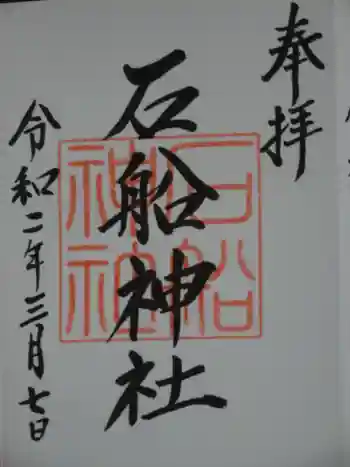 奉拝
石船神社
石船
神社
令和二年三月七日